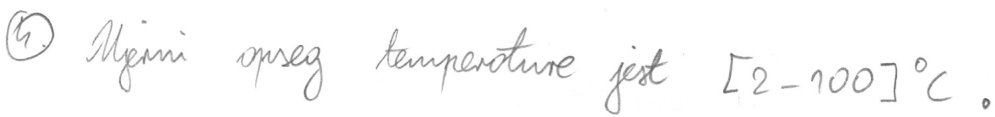 4. Mjerni opseg temperature jest [2-100]°C.